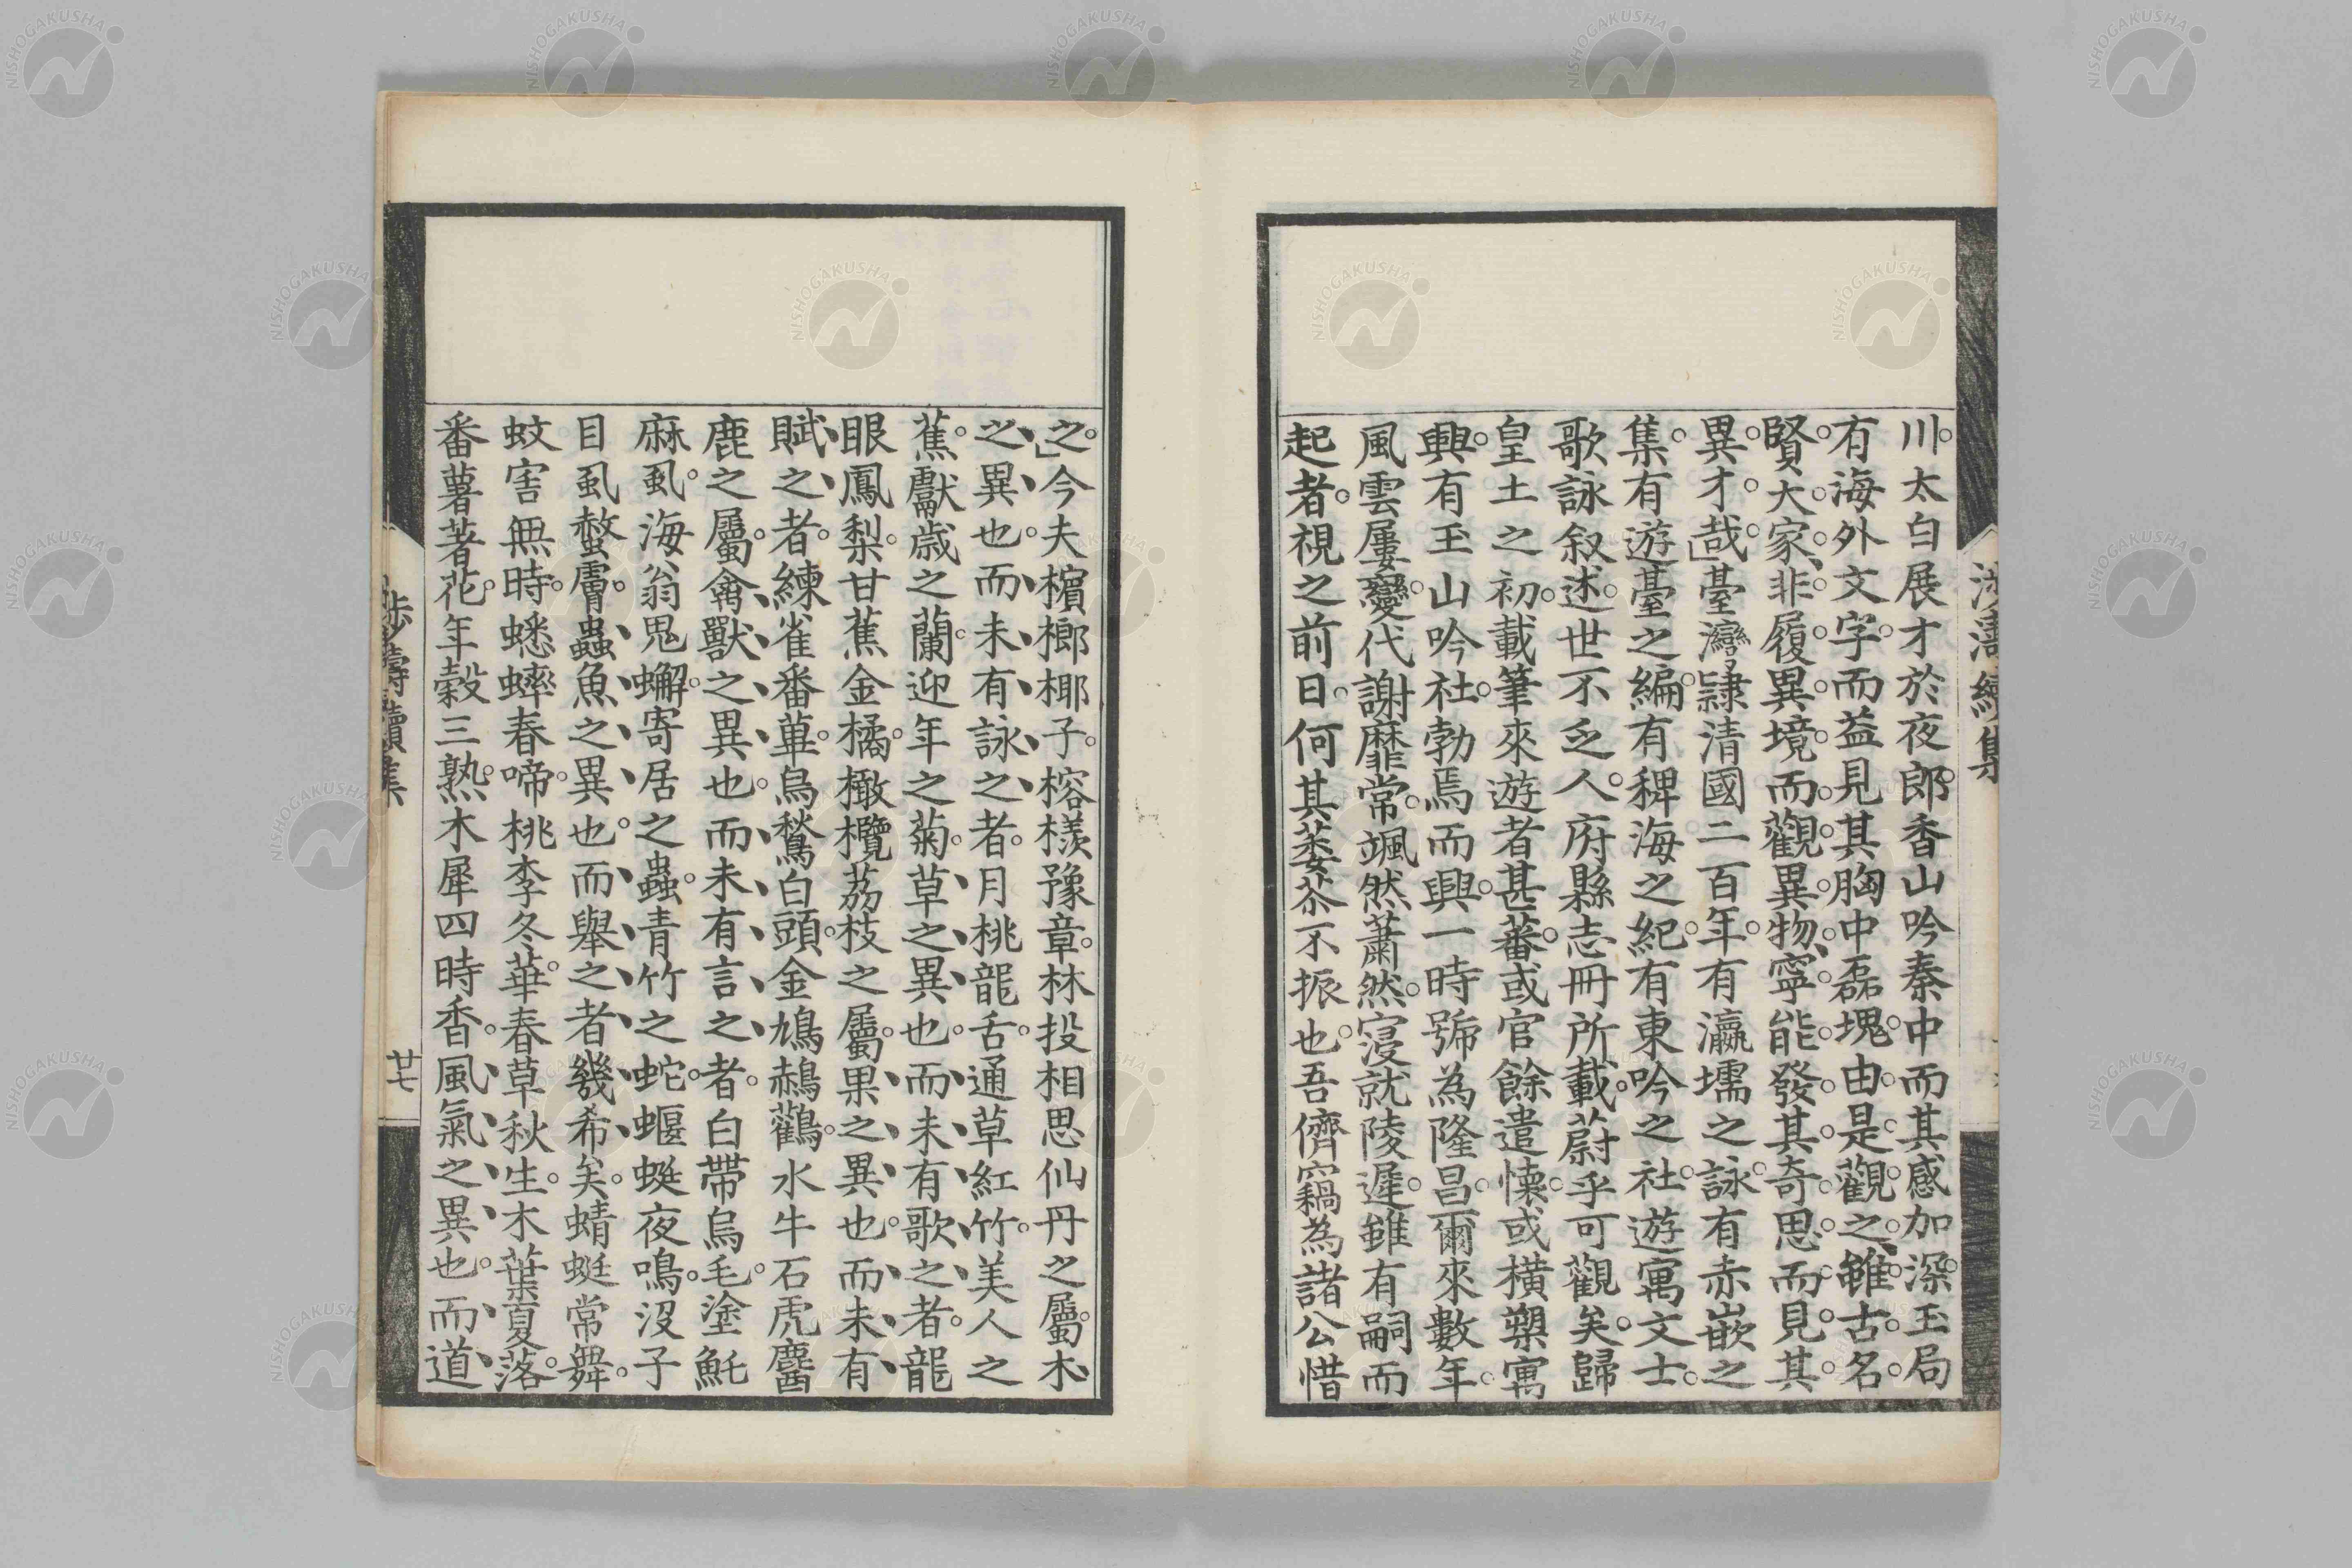 川。太白展才於夜郎。香山吟秦中而其感加深。玉局
有海外文字。而益見其胸中磊塊。由是觀之、雖古名
賢大家、非履異境而觀異物、寧能發其奇思而見其
異才哉。」臺灣隷清國二百年。有瀛壖之詠。有赤嵌之
集。有遊臺之編。有稗海之紀。有東吟之社。遊寓文士。
歌詠叙述。世不乏人。府縣志冊所載。蔚乎可觀矣。歸
皇土之初。載筆來遊者甚蕃。或官餘遣懷。或橫槊寓
興。有玉山吟社。勃焉而興。一時號為隆昌。爾來數年。
風雲屢變。代謝靡常。颯然蕭然。寖就陵遲。雖有嗣而
起者。視之前日。何其萎苶不振也。吾儕竊為諸公惜
之。」今夫檳榔椰子。榕檨豫章。林投相思仙丹之屬。木
之異也。而未有詠之者。月桃龍舌。通草紅竹。美人之
蕉。獻歲之蘭。迎年之菊。草之異也。而未有歌之者。龍
眼鳳梨。甘蕉金橘。橄欖荔枝之屬。果之異也。而未有
賦之者。練雀番萆。烏鶖白頭。金鳩鵜鸛。水牛石虎麞
鹿之屬。禽獸之異也。而未有言之者。白帶烏毛。塗魠
麻虱。海翁鬼蠏。寄居之蟲。青竹之蛇。蝘蜓夜鳴。沒子
目虱螫膚。蟲魚之異也。而舉之者幾希矣。蜻蜓常舞。
蚊害無時。蟋蟀春啼。桃李冬華。春草秋生。木葉夏落。
番薯著花。年穀三熟。木犀四時香。風氣之異也。而道
濤續集
廿七
NISHOGAKUSHA